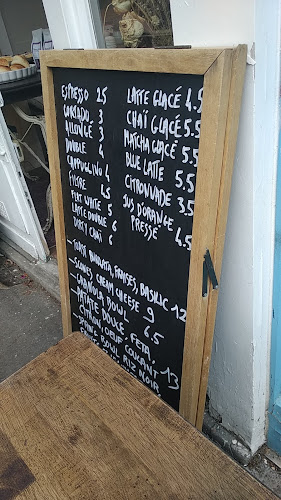 ESPRESSO 2.5
CORTADO 3
ALLONGÉ 3
DOUBLE 4
CAPPUCCINO 4
MYSTRE 4.5
FLAT WHITE 5
LATTE DOUBLE 6
DIRTY CHAÏ 6
LATTE GLACÉ 4.5
CHAÏ GLACÉ 5.5
MATCHA GLACÉ 5.5
BLUE LATTE 5.5
CITRONNADE 3.5
JUS D'ORANGE
PRESSÉ 4.5
BURRATA, FRAISES, BASILIC 12
- SCONES CREAM CHEESE 9
- GRANOLA BOWL 6.5
- PATATE DOUCE, FETA,
OEUF COULANT 13
BOWL RIZ NOIR